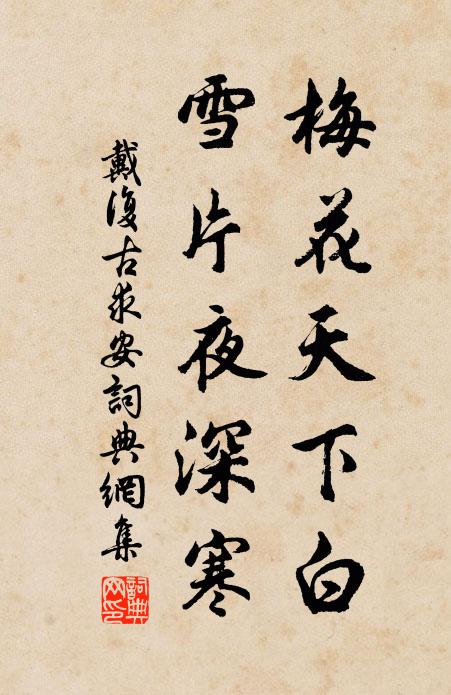 梅花天下白
雪片夜深寒
戴復古求安詞典網集
詞典網印